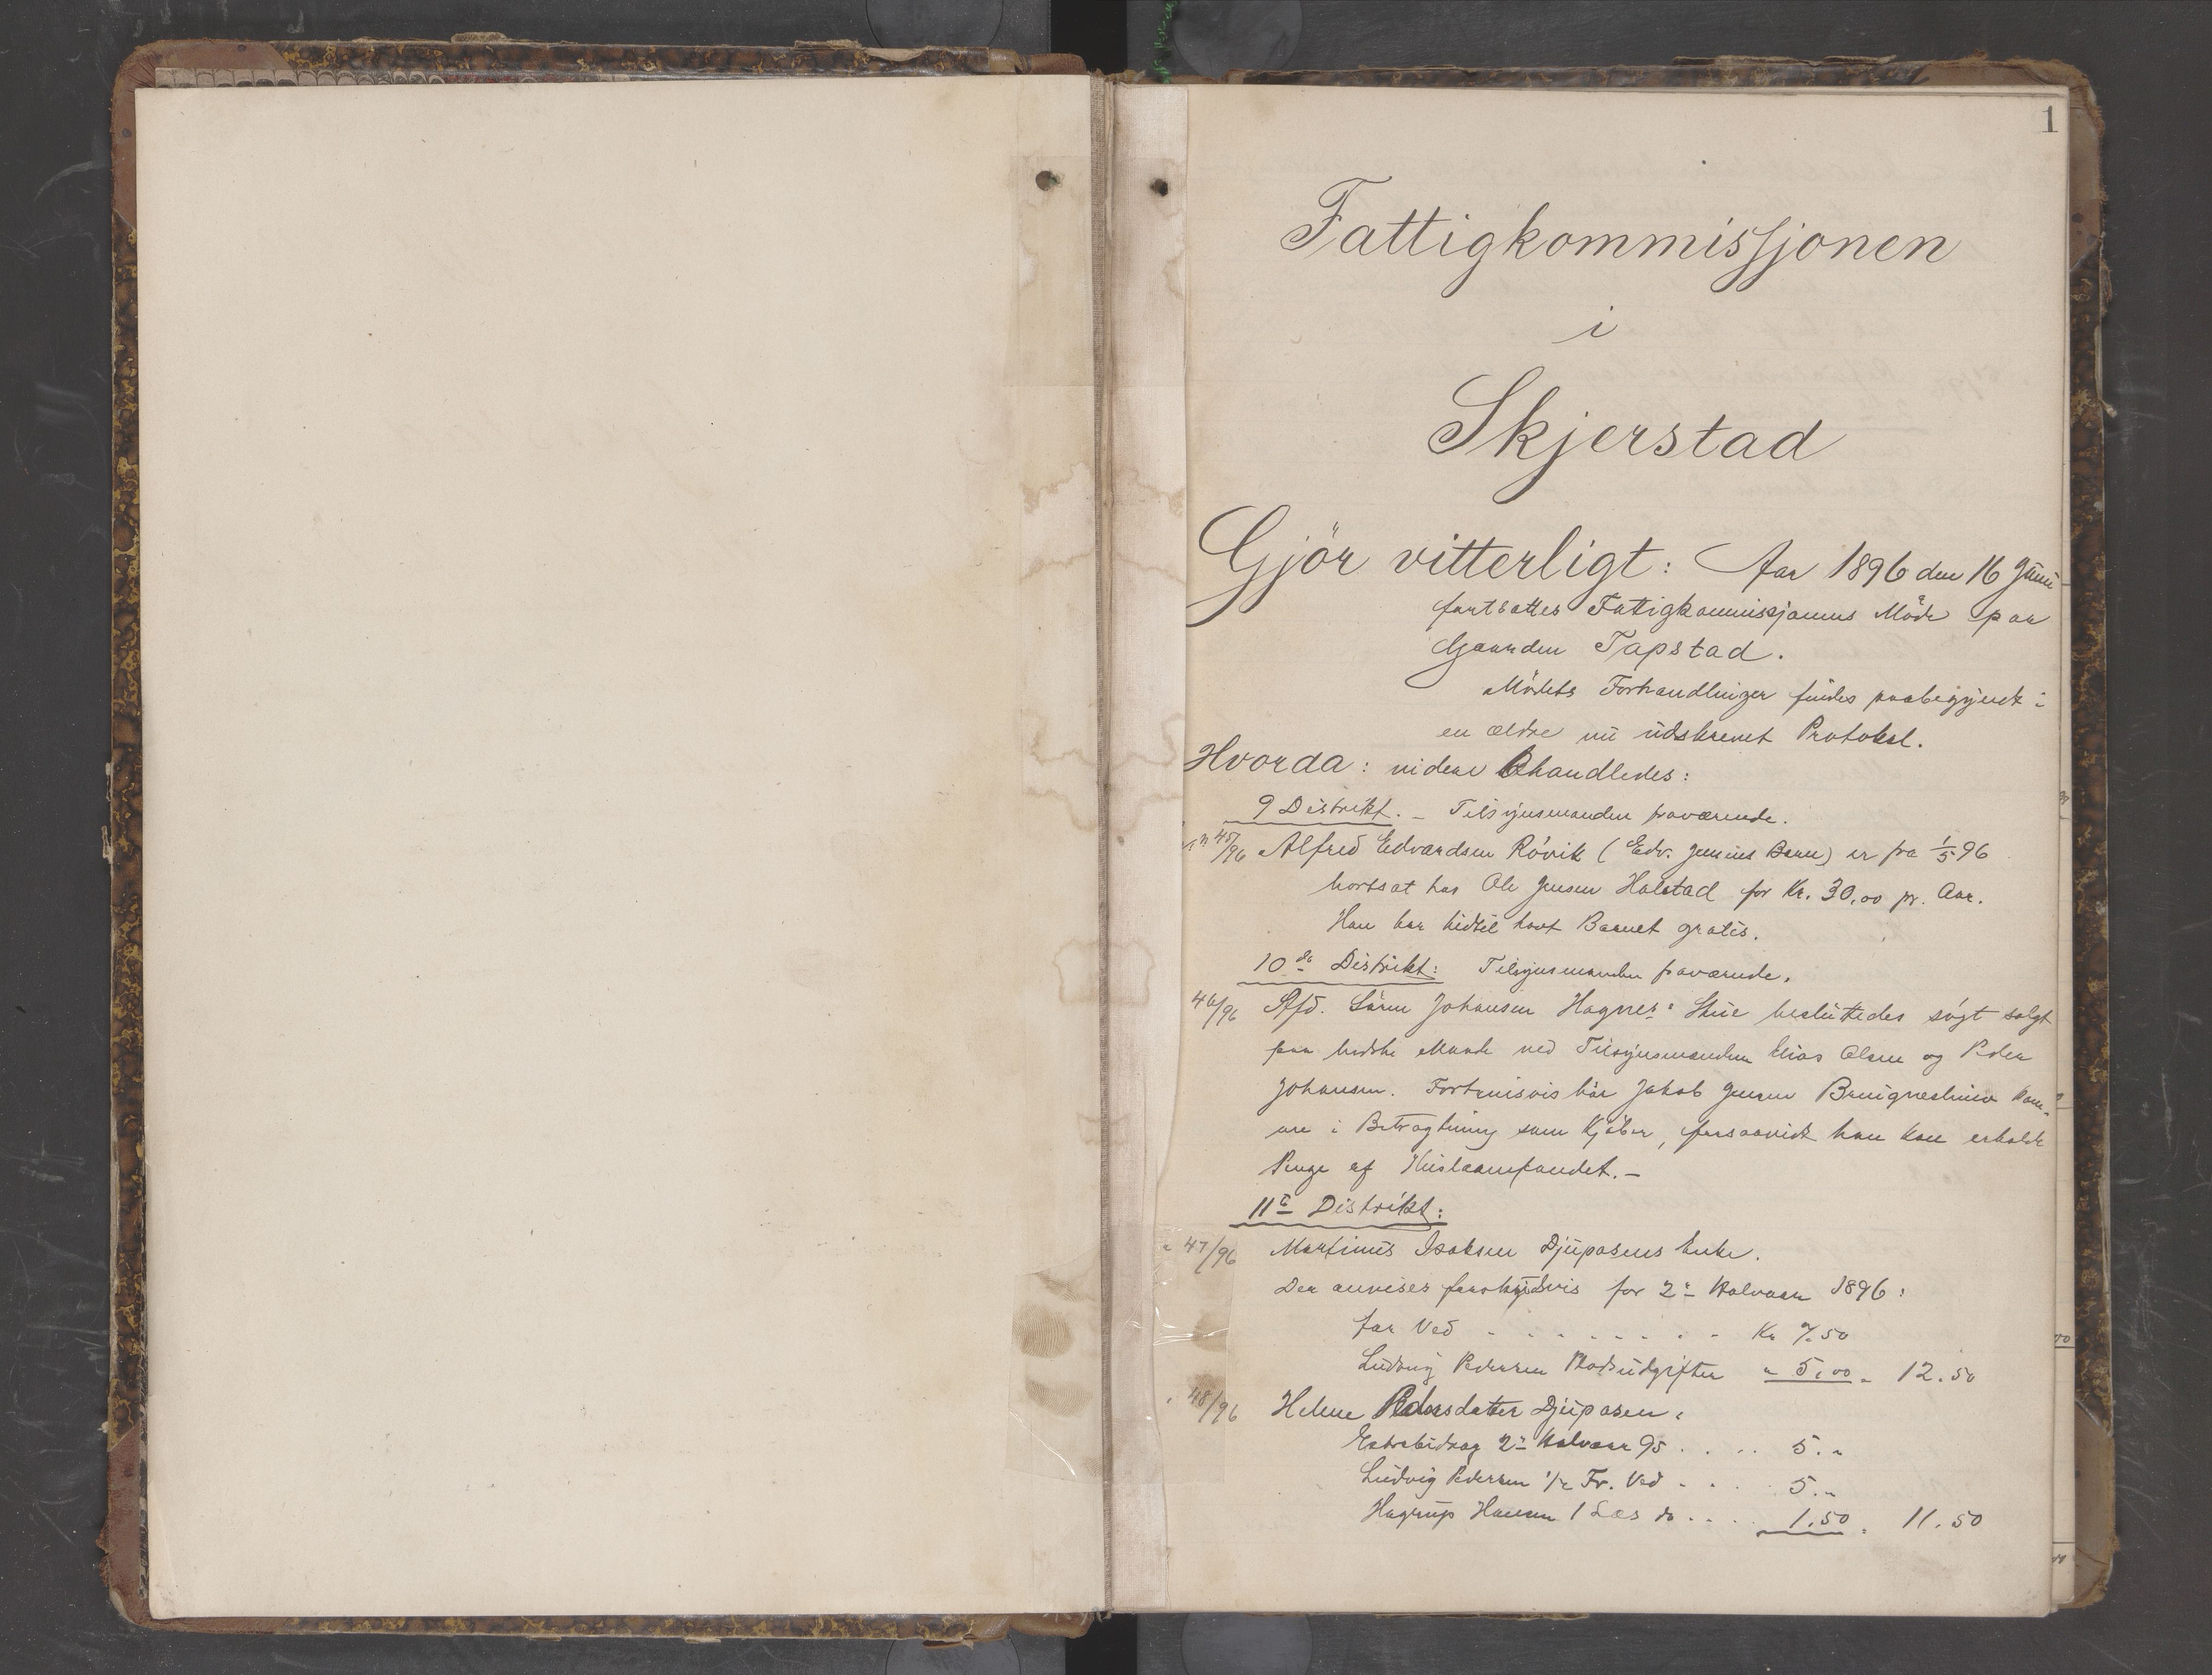 1
Fattigkommissjonen
i
Skjerstad
Gjör vitterligt: Aar 1896 den 16 Juni
fortsattes Fattigkommissjonens Möde paa
Gaarden Tapstad.
Mödets Forhandlinger findes paabegyndt i
en ældre nu udskrevet Protokol.
Hvorda: videre behandledes:
9 Distrikt. _ Tilsynsmanden fraværende.
45/96 Alfred Edvardsen Rövik (Edv. Jensens Barn) er fra 1/5 96
bortsat hos Ole Jensen Halstad for Kr. 30,00 pr. Aar.
Han har hidtil havt Barnet gratis.
10de Distrikt: Tilsynsmanden fraværende.
46/96 Afd. Sören Johansen Hagnes: Stue besluttedes sögt solgt
paa bedste Maade ved Tilsynsmanden Elias Olsen og Peder
Johansen. Fortrinsvis bör Jakob Jensen kom-
me i Betragtning som Kjöber, forsaavidt han kan erholde
Penge af Huslaanfondet. _
11te Distrikt:
" 47/96 Martinus Isaksen Djuposens Enke.
Der anvises forskudsvis for 2det Halvaar 1896:
for Ved - - - - - - - - Kr 7.50
Ludvig Pedersen Pladsudgifter " 5,00 " 12.50
" 48/96 Helene Pedersdatter Djuposen.
Extrabidrag 2det Halvaar 95 . . . . 5."
Ludvig Pedersen 1/2 Fv. Ved - . . . 5."
Hagrup Hansen 1 Læs do . . . . 1.50 " 11.50